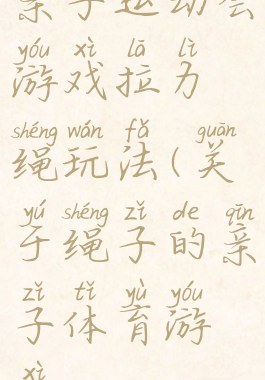 亲子运动会
yóu xì lā lì
游戏拉力
shéng wán fǎ guān
绳玩法(关
yú shéng zǐ de qīn
于绳子的亲
zǐ tǐ yù yóu
子体育游
xì